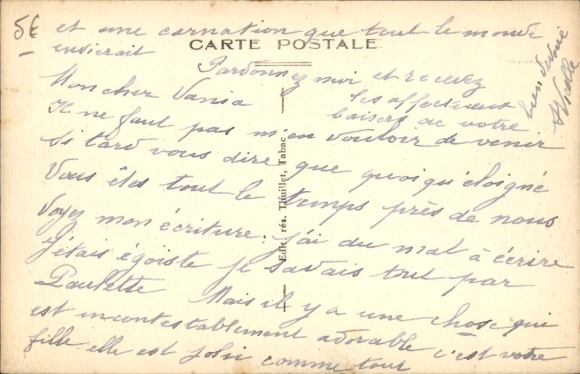 5€ et une carnation que tout le monde
envierait
CARTE POSTALE
Pardonnez moi et recevez
les affectueux
baisers de votre
bien
Mon cher Vania
Il ne faut pas m'en vouloir de venir
si tard vous dire que quoiqu'éloigné
Vous êtes tout le temps près de nous
Voyez mon écriture : j'ai du mal à écrire
J'étais égoïste je savais tout par
Paulette Mais il y a une chose qui
est incontestablement adorable c'est votre
fille elle est jolie comme tout
Edit. rés. Thuillet, Tabac